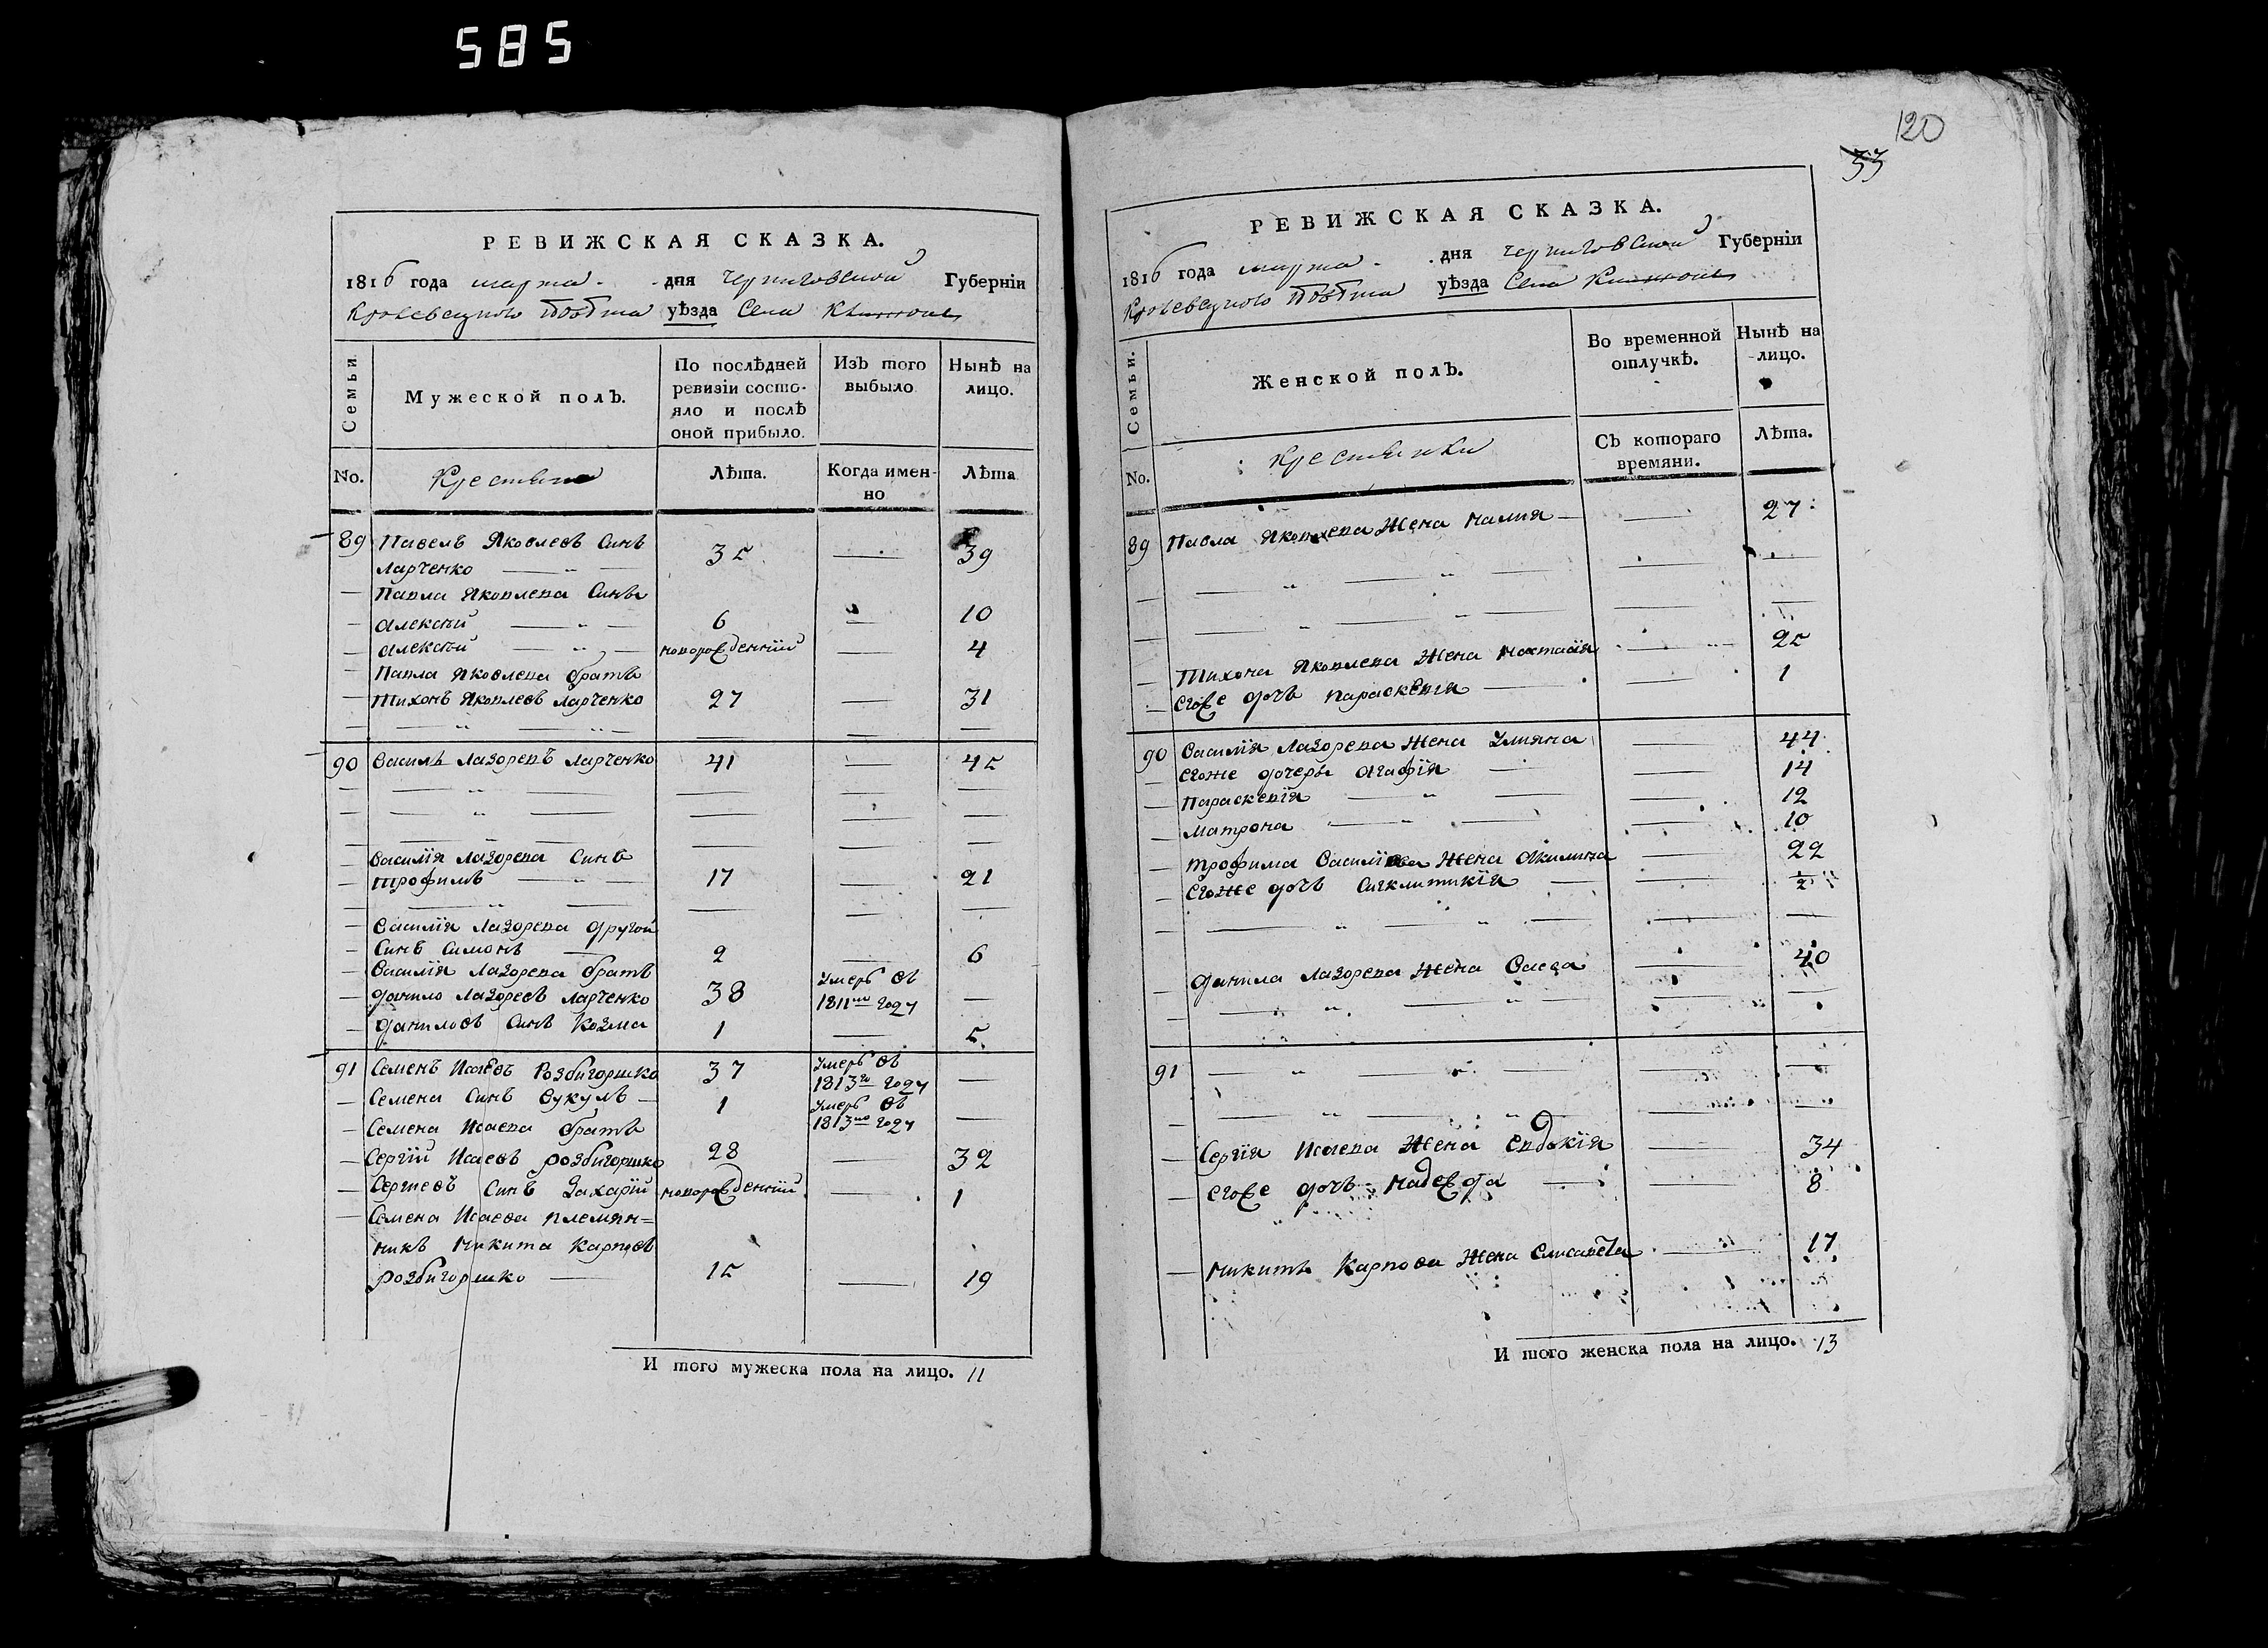 585
120
33
РЕВИЖСКАЯ СКАЗКА.
1816 года марта дня Черниговской Губерніи
Кролевецкого Повѣта уѣзда Села
Семьи
Мужеской полъ.
По послѣдней ревизіи состояло и послѣ оной прибыло.
Изъ того выбыло
Нынѣ на лицо.
No.
Крестьяне
Лѣта.
Когда именно
Лѣта
89 Павелъ Яковлевъ Синъ
Ларченко — 35. — 39
Павла Яковлева Синъ
Алексѣй — 6 — 10
Алексѣй — новорожденній — 4
Павла Яковлева братъ
Тихонъ Яковлевъ Ларченко 27 — 31
90 Василь Лазоревъ Ларченко 41 — 45
Василія Лазорева Синъ
Трофимъ — 17 — 21
Василія Лазорева другой
Синъ Симонъ — 2 — 6
Василія Лазорева братъ
Данило Лазоревъ Ларченко 38 Умеръ въ 1811мъ году —
Даниловъ Синъ Козма 1 — 5
91 Семенъ Исаевъ Розбигоршко 37 Умеръ въ 1813го году —
Семена Синъ Вукулъ — 1 Умеръ въ 1813мъ году —
Семена Исаева братъ
Сергій Исаевъ розбигоршко 28 — 32
Сергиевъ Синъ Захарій новорожденній — 1
Семена Исаева племян=
никъ Никита Карповъ
розбигоршко — 15 — 19
И того мужеска пола на лицо. 11
РЕВИЖСКАЯ СКАЗКА.
1816 года марта дня Черниговской Губерніи
Кролевецкого Повѣта уѣзда Села
Семьи.
Женской полъ.
Во временной отлучкѣ.
Нынѣ на лицо.
No.
Крестьянки
Съ котораго времяни.
Лѣта.
89 Павла Яковлева Жена — 27
Тихона Яковлева Жена Настасія — 25
Егоже дочь Параскевія — 1
90 Василія Лазорева Жена Улияна — 44
Егоже дочеры Агафія — 14
Параскевія — 12
Матрона — 10
Трофима Василіева Жена Акилина — 22
Егоже дочь Сигклитикія — 1/2
Данила Лазорева Жена Васса — 40
91
Сергія Исаева Жена Евдокія — 34
Егоже дочь Надежда — 8
Никиты Карпова Жена Елисавета — 17
И того женска пола на лицо. 13